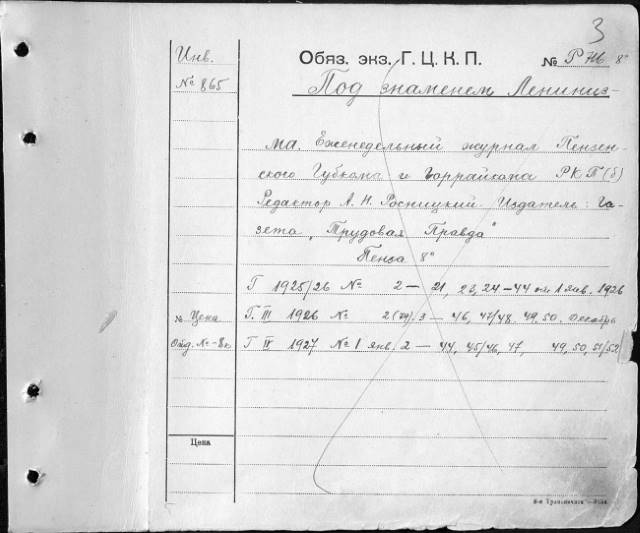 3
Инв.
№ 865
Обяз. экз. Г. Ц. К. П. № 8°
Под знаменем Лениниз-
ма. Еженедельный журнал Пензен-
ского Губкома и Горрайкома РКП(б)
Редактор А. Н. Росницкий Издатель: Га-
зета „Трудовая Правда"
Пенза 8°
Г 1925/26 № 2 — 21, 23, 24—44 от 1 янв. 1926
№ Цена
Г. III 1926 № 3 — 46, 47/48. 49, 50. Декабрь
Отд. № — 8к
Г IV 1927 № 1 янв. 2 — 44, 45/46, 47, 49, 50, 51/52
Цена